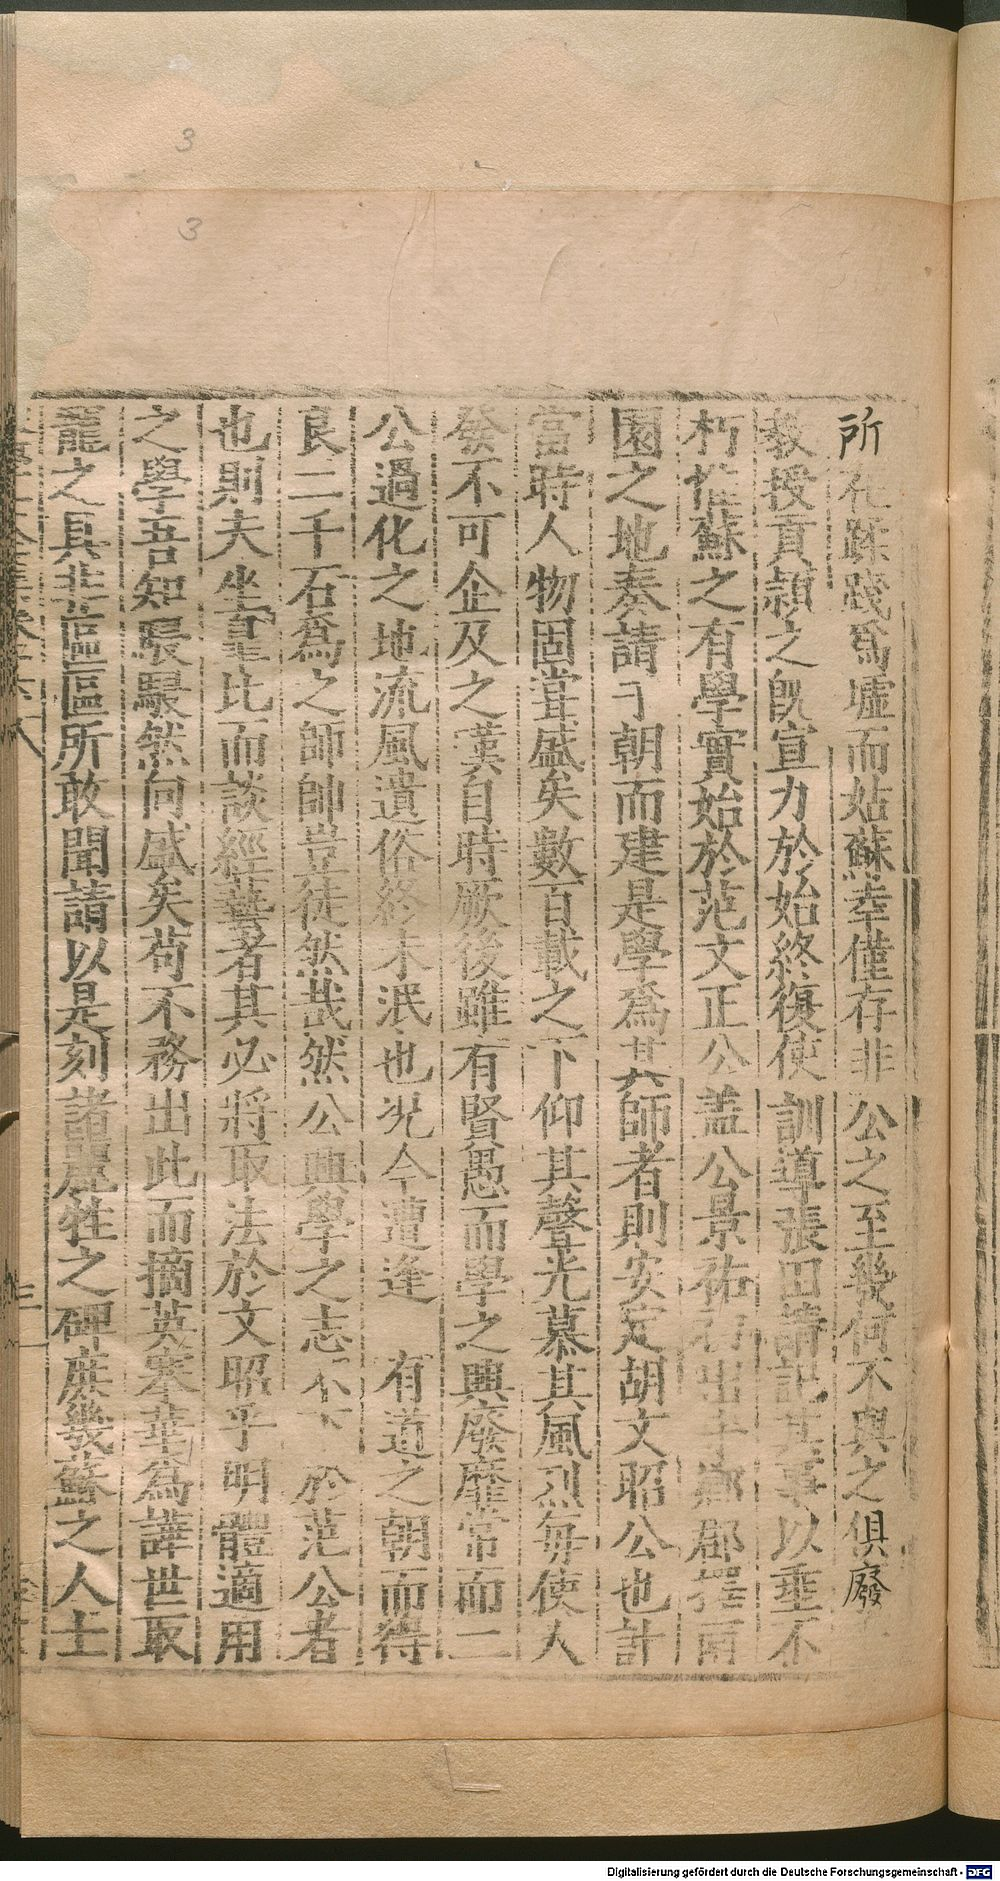 3
3
所 蹂踐爲墟而姑蘇幸僅存非 公之至幾何不與之俱廢
教授貢潁之旣宣力於始終復使 訓導張田請記其事以垂不
朽惟蘇之有學實始於范文正公蓋 公景祐 出 鄉郡 南
園之地奏請于朝而建是學爲其師者則安定胡文昭公也計
當時人物固葺盛矣數百載之下仰其聲光慕其風烈每使人
發不可企及之嘆自時厥後雖有賢愚而學之興廢靡常而二
公過化之地流風遺俗終未泯也况今遭逢 有道之朝而得
良二千石爲之師帥豈徒然哉然公興學之志不下 於范公者
也則夫坐皐比而談經藝者其必將取法於文昭乎明體適用
之學吾知駸駸然向盛矣苟不務出此而摘英搴華爲譁世取
寵之具非區區所敢聞請以是刻諸麗牲之碑庶幾蘇之人士
Digitalisierung gefördert durch die Deutsche Forschungsgemeinschaft - DFG